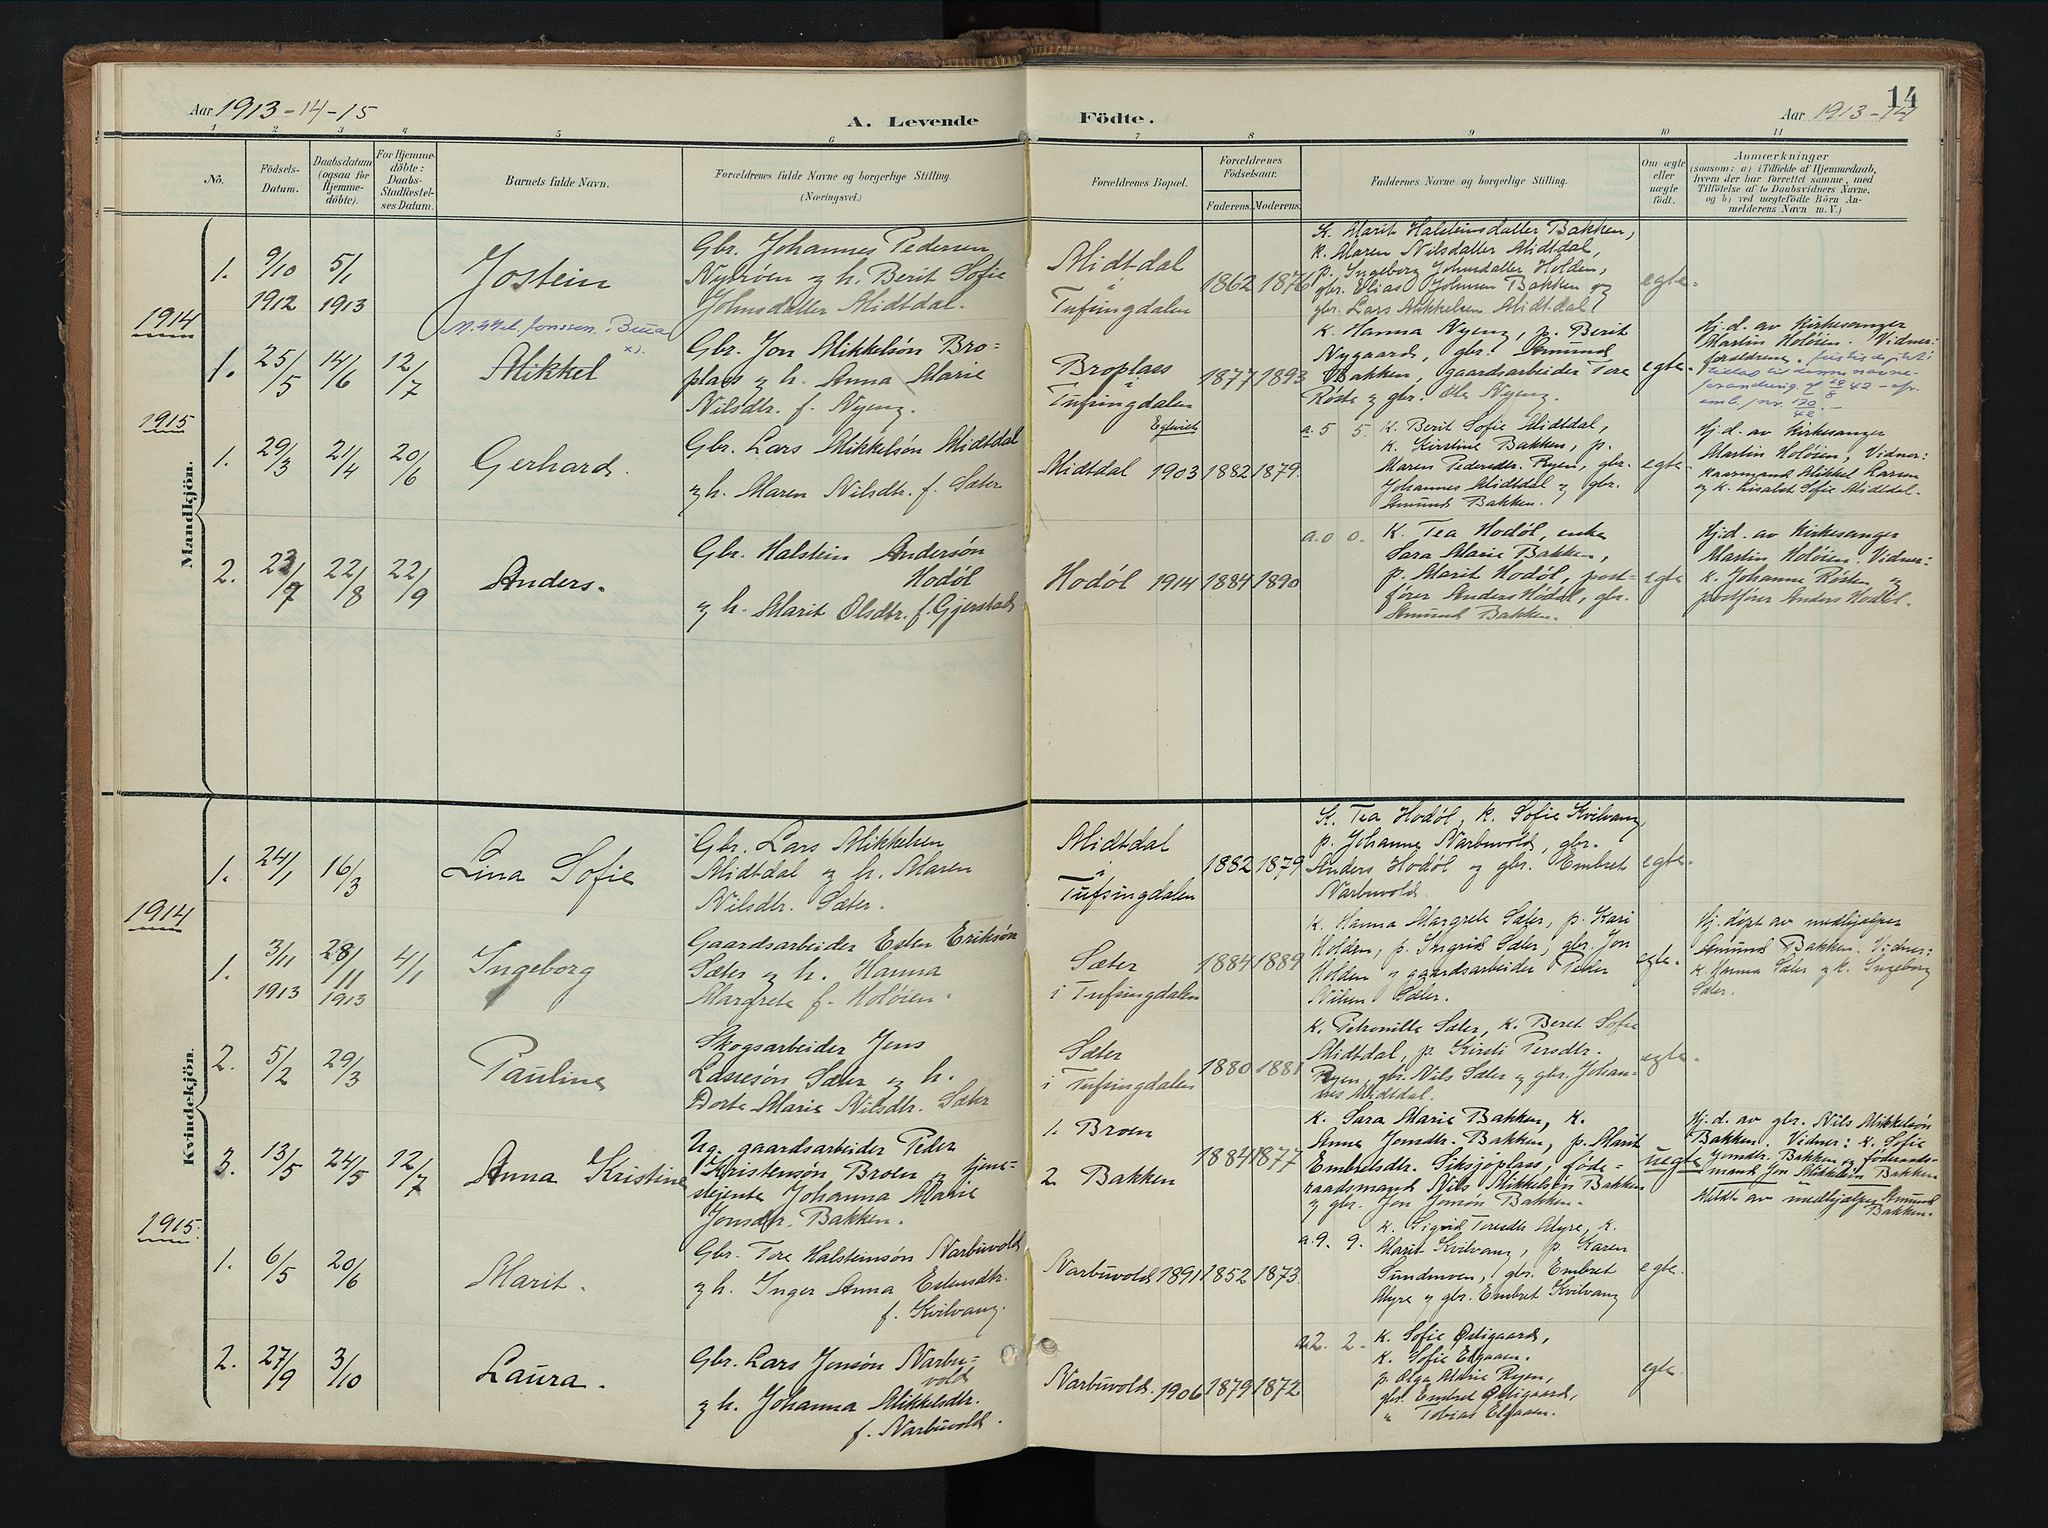 Aar 1913-14-15
A. Levende Födte.
Aar 1913-14
14
1 2 3 4 5 6 7 8 9 10 11
No.
Födsels-
Datum.
Daabsdatum
(ogsaa for
Hjemme-
döbte).
For Hjemme-
döbte:
Daabs-
Stadfæstel-
ses Datum.
Barnets fulde Navn.
Forældrenes fulde Navne og borgerlige Stilling.
(Næringsvei.)
Forældrenes Bopæl.
Forældrenes
Födselsaar.
Faderens.
Moderens.
Faddernes Navne og borgerlige Stilling.
Om ægte
eller
uægte
födt.
Anmærkninger
(saasom: a) i Tilfælde af Hjemmedaab,
hvem der har forrettet samme, med
Tilföielse af to Daabsvidners Navne,
og b) ved uægtefödte Börn An-
melderens Navn m. V.)
Mandkjön.
1. 9/10 1912
5/1 1913
Jostein
Gbr. Johannes Pedersen
Nybrøen og h. Berit Sofie
Johnsdatter Midtdal.
Midtdal
i
Tufsingdalen
1862 1876
K. Marit Halsteinsdatter Bakken,
k. Maren Nilsdatter Midtdal,
p. Ingeborg Johnsdatter Holden,
gbr. Elias Johnsen Bakken og
gbr. Lars Mikkelsen Midtdal
egte.
1914
1. 25/5 14/6 12/7
Mikkel Jonssen Bua
x).
Mikkel
Gbr. Jon Mikkelsøn Bro-
plass og h. Anna Marie
Nilsdtr. f. Nyeng.
Broplass
i
Tufsingdalen
1877 1893
k. Hanna Nyeng, p. Berit
Nygaard, gbr. Amund
Bakken, gaardsarbeider Tore
Røste og gbr. Ole Nyeng.
egte.
Hj.d. av Kirkesanger
Martin Holøien. Vidner:
forældrene.
1915
1. 29/3 21/4 20/6
Gerhard.
Gbr. Lars Mikkelsøn Midtdal
og h. Maren Nilsdtr. f. Sæter
Egteviet
Midtdal 1903 1882 1879.
a. 5 5. k. Berit Sofie Midtdal,
k. Kirstine Bakken, p.
Maren Pedersdtr. Ryen, gbr.
Johannes Midtdal og gbr.
Amund Bakken.
egte
Hj.d. av Kirkesanger
Martin Holøien, Vidner:
kaarmand Mikkel Larsen
og k. Lisabet Sofie Midtdal.
2. 23/7 22/8 22/9
Anders.
Gbr. Halstein Andersøn
Hodøl
og h. Marit Olsdtr. f. Gjerstad
Hodøl 1914 1884 1890
a. 0 0. k. Tea Hodøl, enke
Sara Marie Bakken,
p. Marit Hodøl, post-
fører Anders Hodøl, gbr.
Amund Bakken.
egte
Hj.d. av Kirkesanger
Martin Holøien. Vidner:
k. Johanne Røsten og
postfører Anders Hodøl.
Kvindekjön.
1. 24/1 16/3
Lina Sofie
Gbr. Lars Mikkelsen
Midtdal og h. Maren
Nilsdtr. Sæter.
Midtdal
i
Tufsingdalen
1882 1879
K. Tea Hodøl, k. Sofie Kvilvang,
p. Johanne Narbuvold, gbr.
Anders Hodøl og gbr. Embret
Narbuvold.
egte.
1914
1. 3/11 1913
28/11 1913
4/1
Ingeborg
Gaardsarbeider Esten Eriksøn
Sæter og h. Hanna
Margrete f. Holøien.
Sæter
i Tufsingdalen
1884 1889
k. Hanna Margrete Sæter, p. Kari
Holden, p. Ingrid Sæter, gbr. Jon
Holden og gaardsarbeider Peder
Nilsen Sæter.
egte.
Hj.døpt av medhjælper
Amund Bakken. Vidner:
k. Hanna Sæter og k. Ingeborg
Sæter.
2. 5/2 29/3
Pauline
Skogsarbeider Jens
Lassesøn Sæter og h.
Dorte Marie Nilsdtr. Sæter
Sæter
i Tufsingdalen
1880 1881
k. Petronille Sæter, k. Beret Sofie
Midtdal, p. Kirsti Persdtr.
Ryen, gbr. Nils Sæter og gbr. Johan-
nes Midtdal.
egte.
3. 13/5 24/5 12/7
Anna Kristine
Ug. gaardsarbeider Peder
Kristensøn Broen og tjene-
stejente Johanna Marie
Jonsdtr. Bakken.
1. Broen
2. Bakken
1884 1877
k. Sara Marie Bakken, k.
Anne Jonsdtr. Bakken, p. Marit
Embretsdtr. Siksjöplass, føde-
raadsmand Nils Mikkelsøn Bakken
og gbr. Jon Jonsøn Bakken.
uegte
Hj.d. av gbr. Nils Mikkelsøn
Bakken. Vidner: k. Sofie
Jonsdtr. Bakken og føderaads-
mand Jon Mikkelsøn Bakken
Meldt av medhjælper Amund
Bakken.
1915.
1. 6/5 20/6
Marit.
Gbr. Tore Halsteinsøn Narbuvold
og h. Inger Anna Estensdtr.
f. Kvilvang.
Narbuvold 1891 1852 1873.
a. 9. 9. k. Sigrid Toresdtr Myre, k.
Marit Kvilvang, p. Karen
Sundmoen, gbr. Embret
Myre og gbr. Embret Kvilvang
egte.
2. 27/9 3/10
Laura.
Gbr. Lars Jensøn Narbu-
vold
og h. Johanna Mikkelsdtr.
f. Narbuvold.
Narbuvold. 1906 1879 1872
a. 2. 2. k. Sofie Østigaard,
k. Sofie Elgaaen.
p. Olga Marie Ryen,
gbr. Embret Østigaard,
" Tobias Elgaaen.
egte.